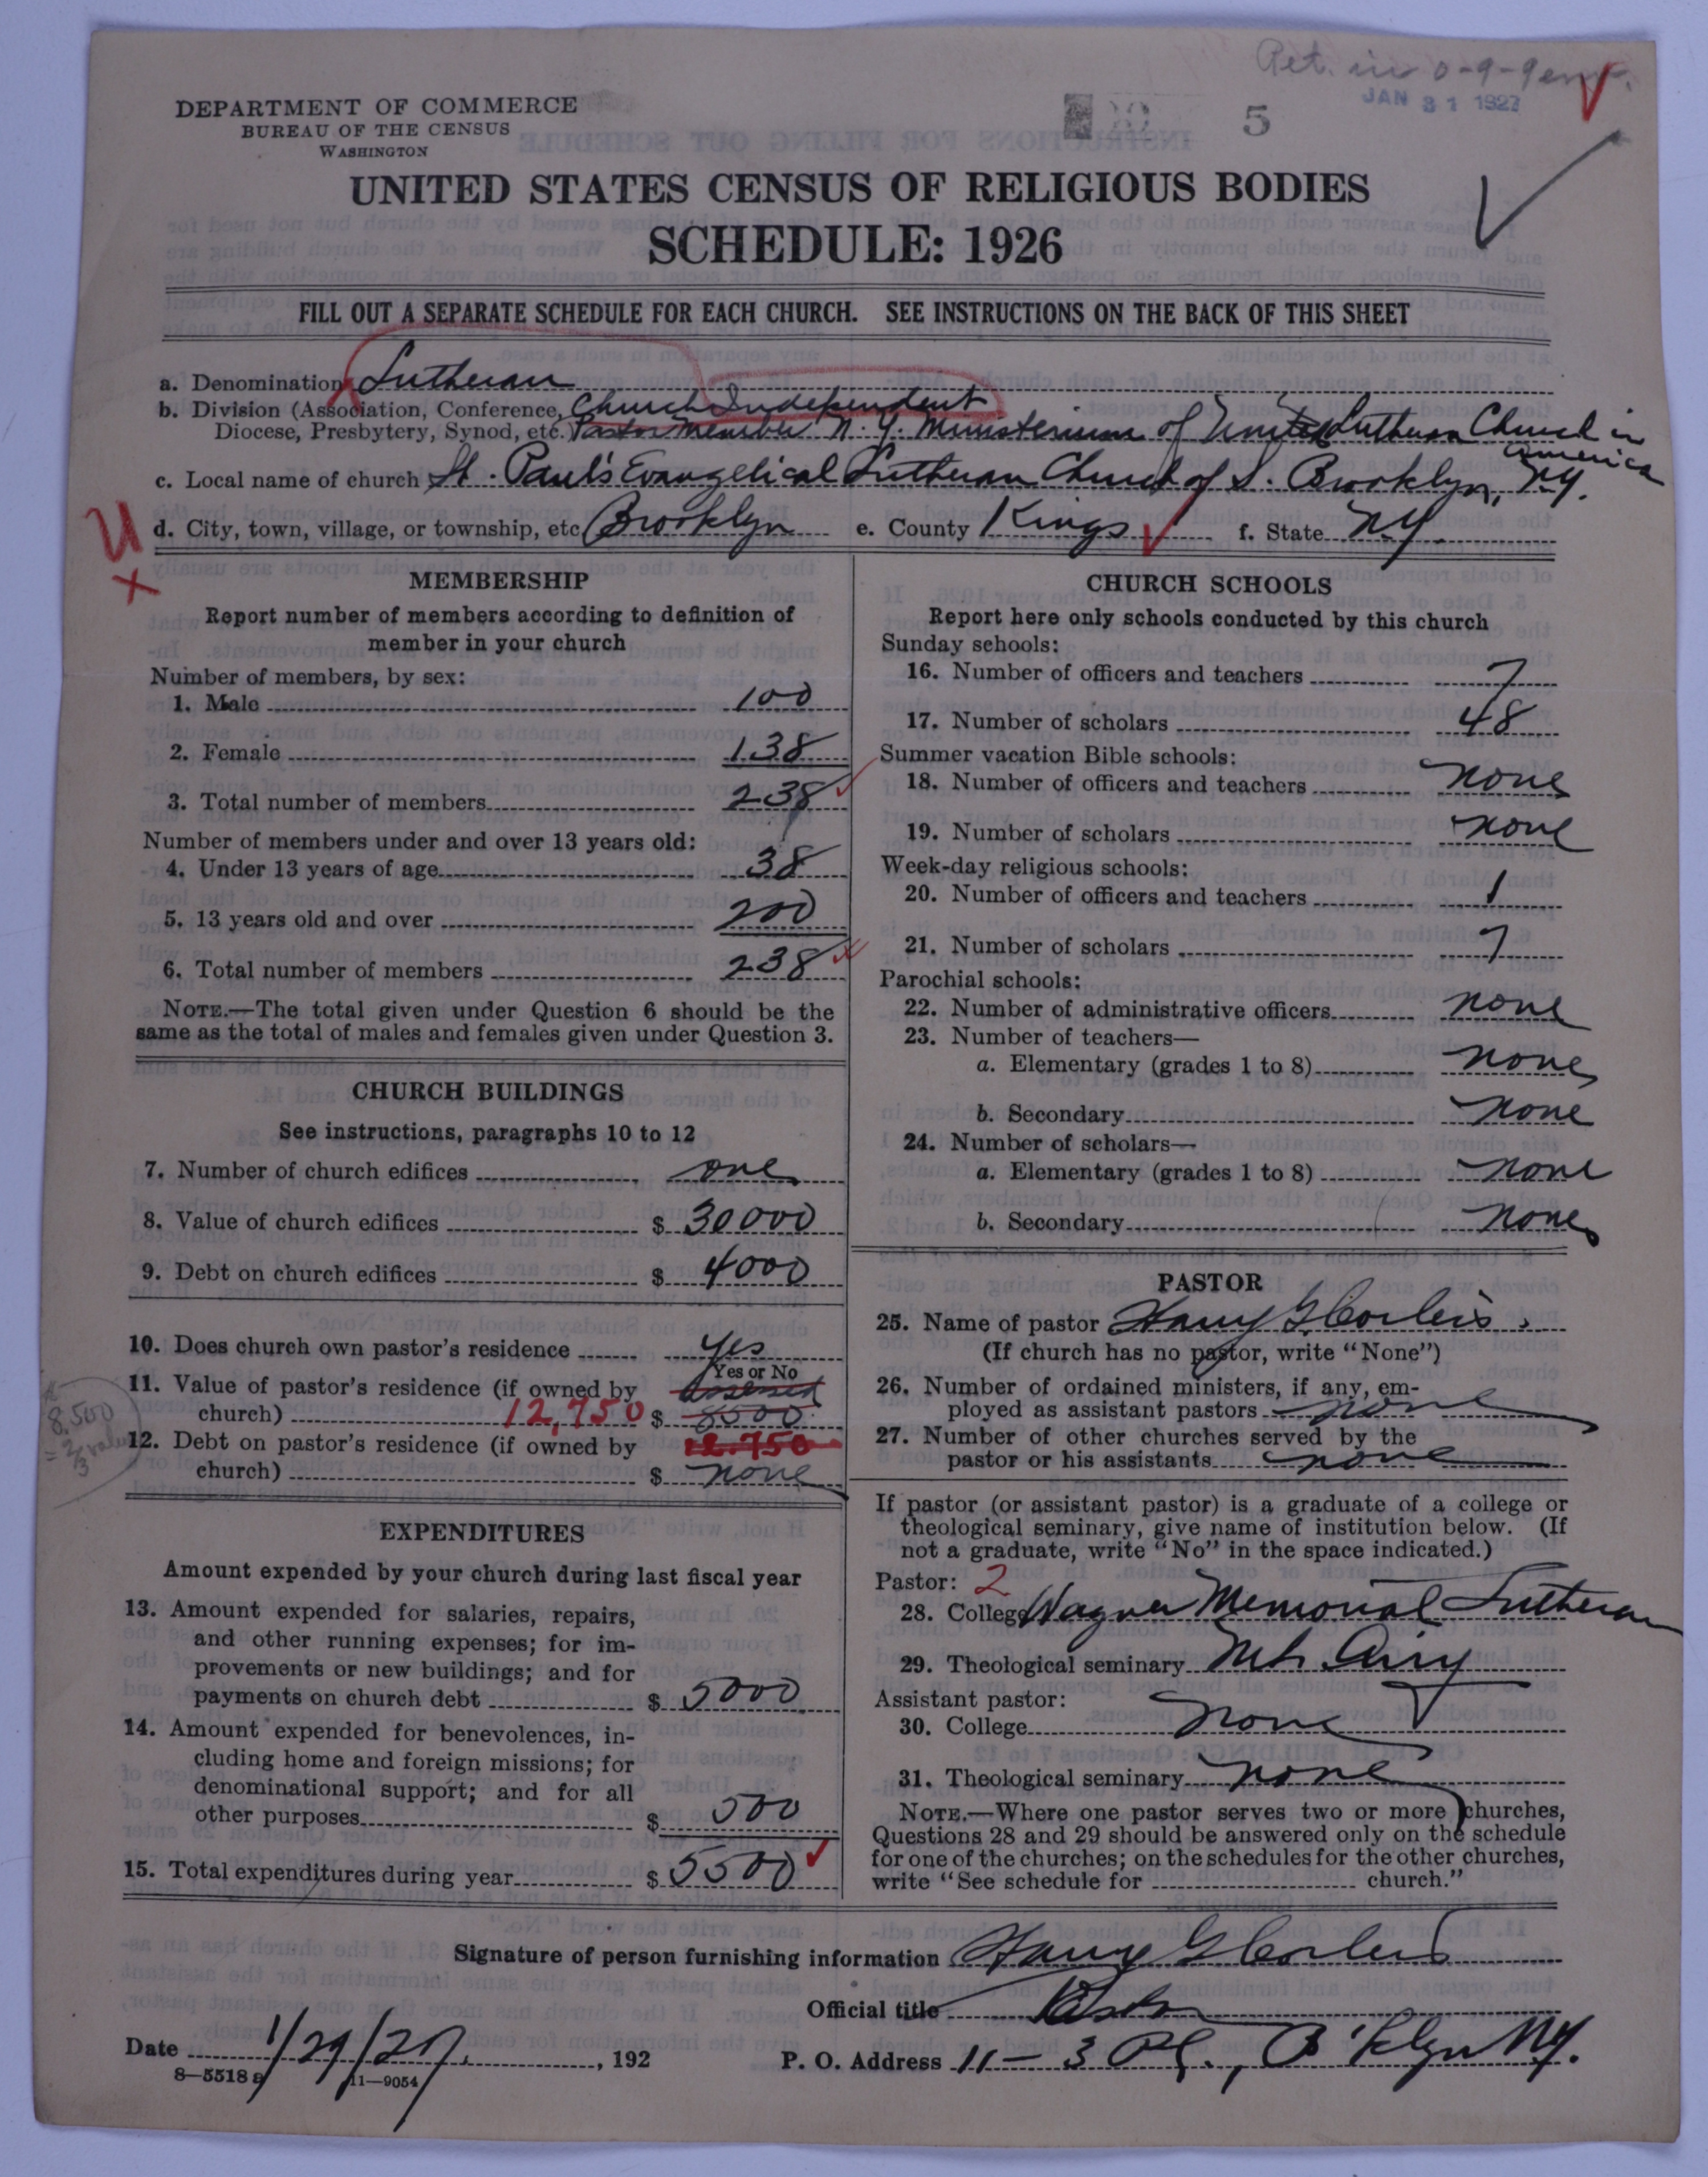 Ret. in 0-9-9 env.
JAN 31 1927
DEPARTMENT OF COMMERCE
BUREAU OF THE CENSUS
WASHINGTON
5
UNITED STATES CENSUS OF RELIGIOUS BODIES
SCHEDULE: 1926
FILL OUT A SEPARATE SCHEDULE FOR EACH CHURCH. SEE INSTRUCTIONS ON THE BACK OF THIS SHEET
a. Denomination Lutheran
b. Division (Association, Conference, Church Independent
Diocese, Presbytery, Synod, etc. Pastor Member N. Y. Ministerium of United Lutheran Church in America
c. Local name of church St. Paul's Evangelical Lutheran Church of S. Brooklyn, N.Y.
U
d. City, town, village, or township, etc Brooklyn e. County Kings f. State N.Y.
X
MEMBERSHIP
Report number of members according to definition of
member in your church
Number of members, by sex:
1. Male 100
2. Female 138
3. Total number of members 238
Number of members under and over 13 years old:
4. Under 13 years of age 38
5. 13 years old and over 200
6. Total number of members 238
NOTE.—The total given under Question 6 should be the
same as the total of males and females given under Question 3.
CHURCH BUILDINGS
See instructions, paragraphs 10 to 12
7. Number of church edifices one
8. Value of church edifices $ 30000
9. Debt on church edifices $ 4000
10. Does church own pastor's residence yes
Yes or No
11. Value of pastor's residence (if owned by assessed
church) 12,750 $ 8500
8.500
= 2/3 value
12. Debt on pastor's residence (if owned by 12.750
church) $ none
EXPENDITURES
Amount expended by your church during last fiscal year
13. Amount expended for salaries, repairs,
and other running expenses; for im-
provements or new buildings; and for
payments on church debt $ 5000
14. Amount expended for benevolences, in-
cluding home and foreign missions; for
denominational support; and for all
other purposes $ 500
15. Total expenditures during year $ 5500
CHURCH SCHOOLS
Report here only schools conducted by this church
Sunday schools:
16. Number of officers and teachers 7
17. Number of scholars 48
Summer vacation Bible schools:
18. Number of officers and teachers none
19. Number of scholars none
Week-day religious schools:
20. Number of officers and teachers 1
21. Number of scholars 7
Parochial schools:
22. Number of administrative officers none
23. Number of teachers—
a. Elementary (grades 1 to 8) none
b. Secondary none
24. Number of scholars—
a. Elementary (grades 1 to 8) none
b. Secondary none
PASTOR
25. Name of pastor Harry G. Corleis.
(If church has no pastor, write "None")
26. Number of ordained ministers, if any, em-
ployed as assistant pastors none
27. Number of other churches served by the
pastor or his assistants none
If pastor (or assistant pastor) is a graduate of a college or
theological seminary, give name of institution below. (If
not a graduate, write "No" in the space indicated.)
Pastor: 2
28. College Wagner Memorial Lutheran
29. Theological seminary Mt. Airy
Assistant pastor:
30. College none
31. Theological seminary none
NOTE.—Where one pastor serves two or more churches,
Questions 28 and 29 should be answered only on the schedule
for one of the churches; on the schedules for the other churches,
write "See schedule for church."
Signature of person furnishing information Harry G Corleis
Official title Pastor
Date 1/29/27, 192
P. O. Address 11 – 3 Pl., B'klyn N.Y.
8—5518 a 11—9054